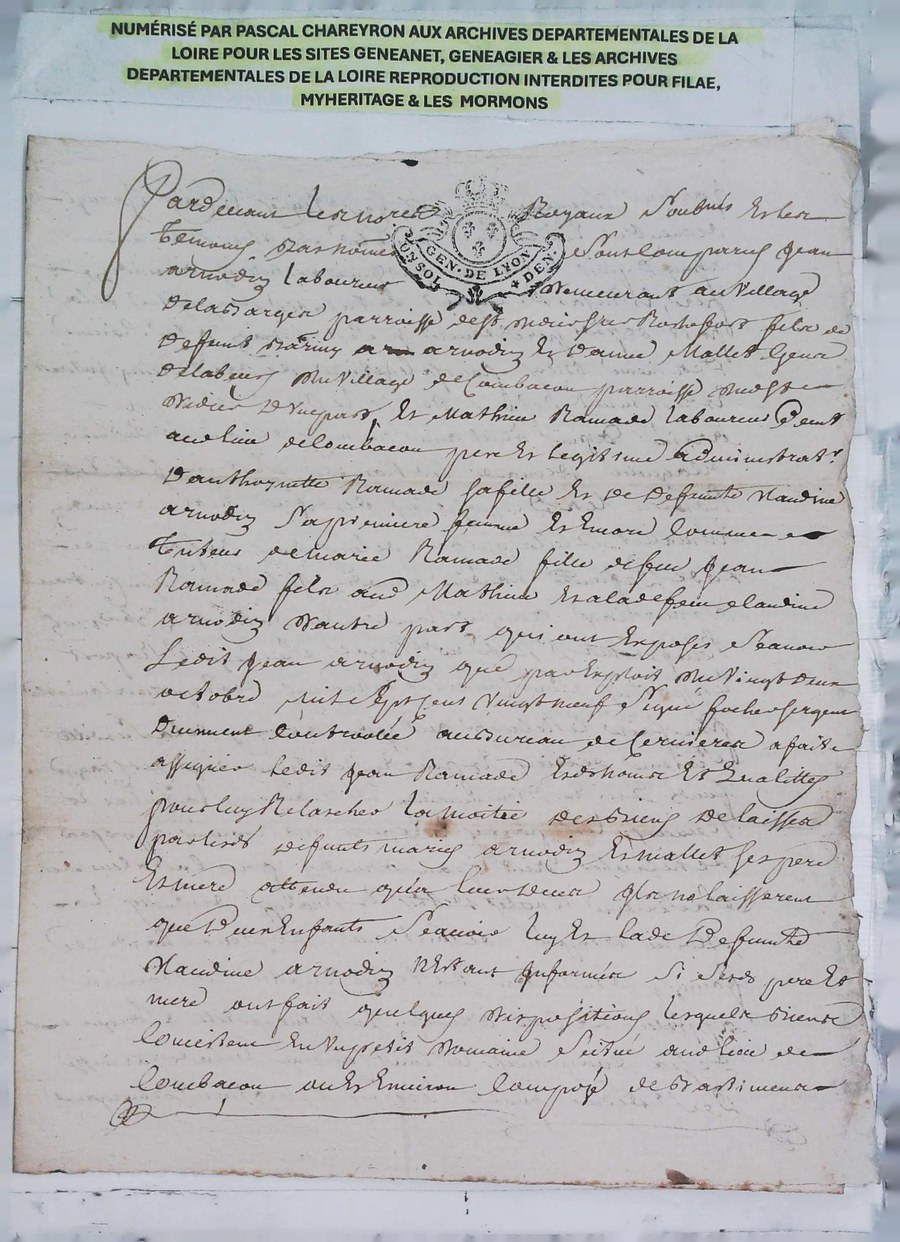 NUMÉRISÉ PAR PASCAL CHAREYRON AUX ARCHIVES DEPARTEMENTALES DE LA
LOIRE POUR LES SITES GENEANET, GENEAGIER & LES ARCHIVES
DEPARTEMENTALES DE LA LOIRE REPRODUCTION INTERDITES POUR FILAE,
MYHERITAGE & LES MORMONS
Pardevant les Royaux Soubsig Et les
GEN. DE LYON
UN SOL DEN.
temoins bas nommes Sont comparus Jean
arnodin laboureur Demeurant au village
parroisse de st Rochefort fils de
Deffunt arnodin Et Danne Mallet
du village de Combacon parroisse
Et Mathieu Ramade laboureur Demt
au lieu de Combacon pere Et legitime administratr
Danthoynette Ramade sa fille Et de Deffunte Claudine
arnodin Sa premiere femme Et Encore comme
tuteur de marie Ramade fille de feu Jean
Ramade fils aud Mathieu Et a lad feue Claudine
arnodin Dautre part qui ont Exposes Scavoir
Ledit Jean arnodin que par Exploit du vingt deux
octobre mil Sept cens vingt neuf Signé sergent
Duement Controolée au Bureau de Cervieres a fait
assigner ledit Jean Ramade Esd noms Et qualittes
pour luy Relascher la moitié des biens Delaissés
par lesds defunts maries arnodin Et mallet ses pere
Et mere attendu qua leur deces Ils ne laisserent
que Deux Enfants Scavoir luy Et lade Deffunte
Claudine arnodin Nestant Informés Si sesds pere Et
mere ont fait quelques dispositions lesquels biens
Consistent En un petit Domaine Scitué aud lieu de
Combacon ou Es Environ Composé de Bastiments